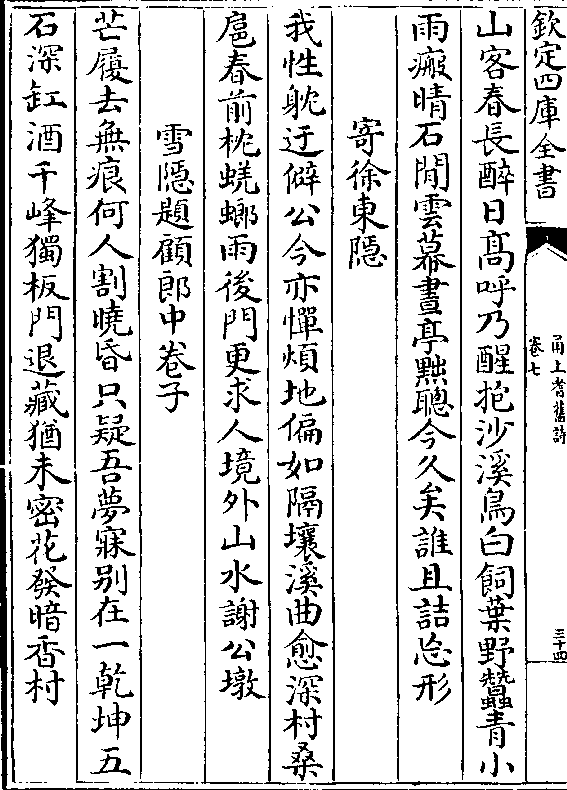 欽定四庫全書
甬上耆舊詩
卷七
三十四
山客春長醉日髙呼乃醒抱沙溪鳥白飼葉野蠶青小
雨瘢晴石閒雲幕晝亭黜聰今久矣誰且詰忘形
寄徐東隱
我性躭迂僻公今亦憚煩地偏如隔壤溪曲愈深村桑
扈春前枕蜣螂雨後門更求人境外山水謝公墩
雪隱題顧郎中卷子
芒屨去無痕何人割曉昏只疑吾夢寐别在一乾坤五
石深缸酒千峰獨板門退藏猶未密花發暗香村